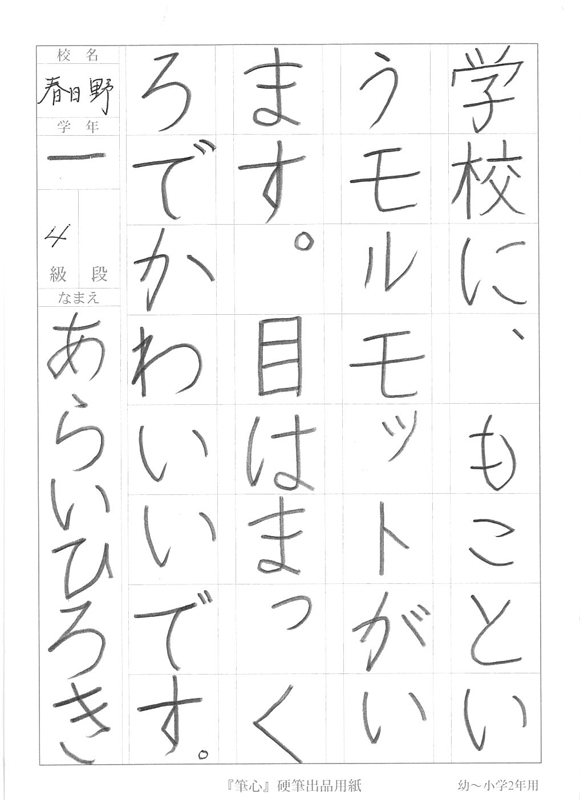 学校に、もことい
うモルモットがい
ます。目はまっく
ろでかわいいです。
校名
春日野
学年
一
4
級 段
なまえ
あらいひろき
『筆心』硬筆出品用紙
幼～小学2年用